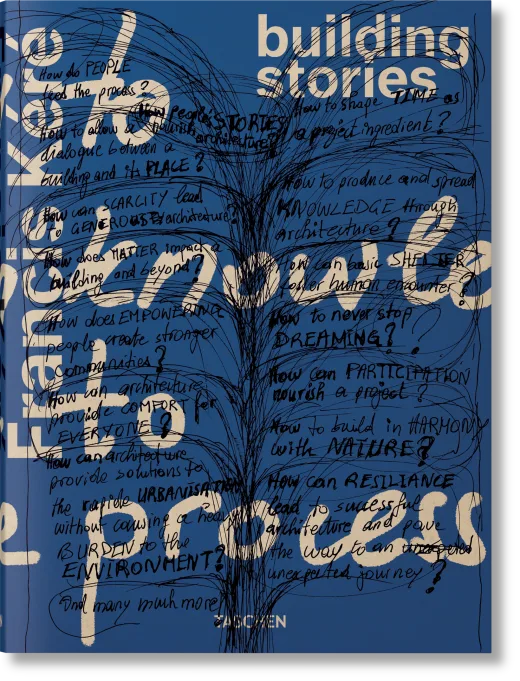 building
stories
Francis Kéré
to
knowle
to
process
How do PEOPLE
feed the process?
How people's STORIES
nourish architecture?
How to allow a
dialogue between a
building and its PLACE?
How can SCARCITY lead
to GENEROUS architecture?
How does MATTER impact a
building and beyond?
How does EMPOWERING
people create stronger
communities?
How can architecture
provide COMFORT for
EVERYONE?
How can architecture
provide solutions to
the rapide URBANISATION
without causing a heavy
BURDEN to the
ENVIRONMENT?
And many much more
How to shape TIME as
a project ingredient?
How to produce and spread
KNOWLEDGE through
architecture?
How can basic SHELTER
foster human encounter?
How to never stop
DREAMING?
How can PARTICIPATION
nourish a project?
How to build in HARMONY
with NATURE?
How can RESILIANCE
lead to successful
architecture and pave
the way to an unexpected
unexpected journey?
TASCHEN